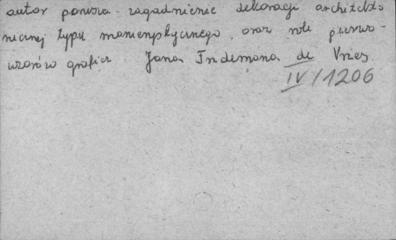 autor porusza zagadnienie dekoracji architekto
nicznej typu manierystycznego, oraz rolę pierwo-
wzorów graficz. Jana Fredemana de Vries
IV/1206